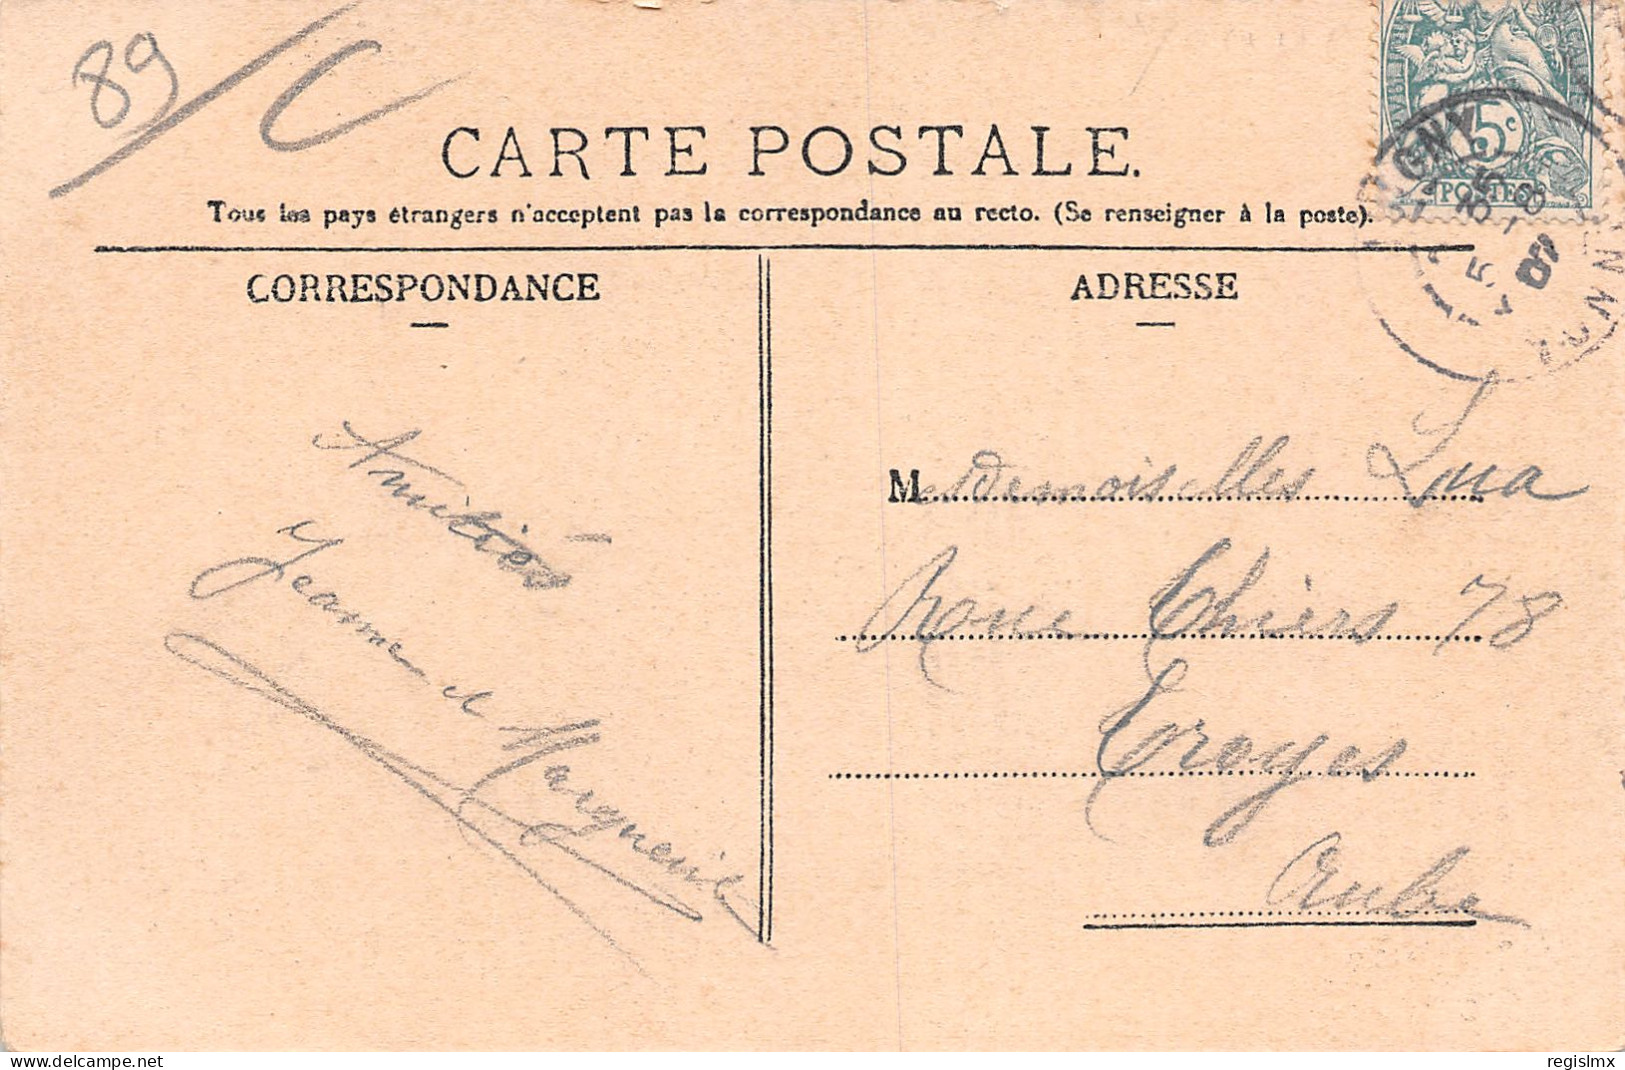 89
CARTE POSTALE.
Tous les pays étrangers n'acceptent pas la correspondance au recto. (Se renseigner à la poste).
5c
POSTES
CORRESPONDANCE
ADRESSE
Amitiés
Jeanne et Marguerite
Mesdemoiselles Lua
Rue Thiers 78
Troyes
Aube
delcampe.net
regislmx